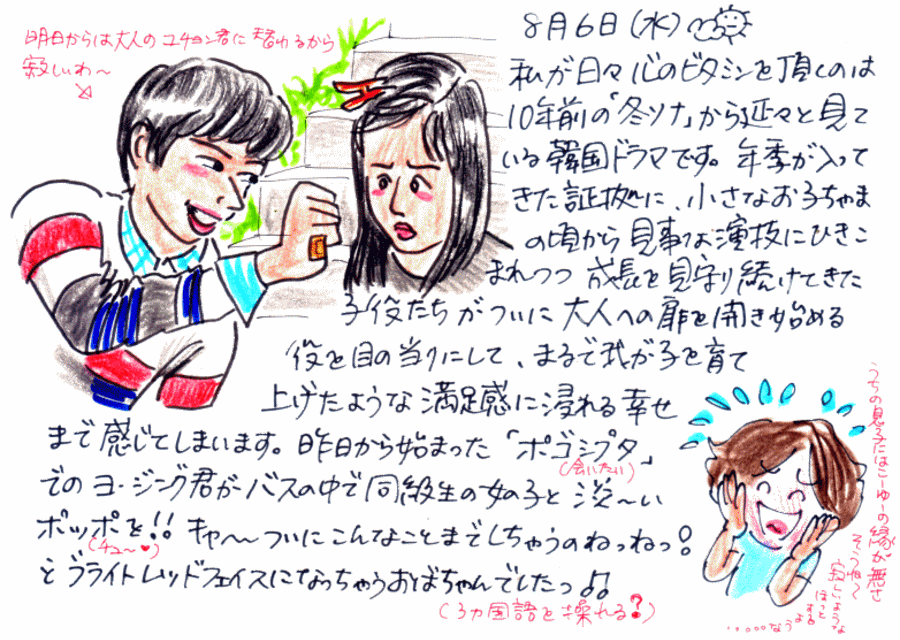 明日からは大人のユチョン君に替わるから
寂しいわ〜
8月6日(水)
私が日々心のビタミンを頂くのは
10年前の「冬ソナ」から延々と見て
いる韓国ドラマです。年季が入って
きた証拠に、小さなお子ちゃま
の頃から見事な演技にひきこ
まれつつ成長を見守り続けてきた
子役たちがついに大人への扉を開き始める
役を目の当りにして、まるで我が子を育て
上げたような満足感に浸れる幸せ
まで感じてしまいます。昨日から始まった「ポゴシプタ」
(会いたい)
でのヨ・ジング君がバスの中で同級生の女の子と淡〜い
ポッポを!!キャ〜〜ついにこんなことまでしちゃうのねっねっ!
(チュ〜♥)
とブライトレッドフェイスになっちゃうおばちゃんでしたっ♪♪
(3ヵ国語を操れる?)
うちの息子にはこーゆーの縁が無さ
そうね〜
寂しいような
ほっとする
ような・・・・・